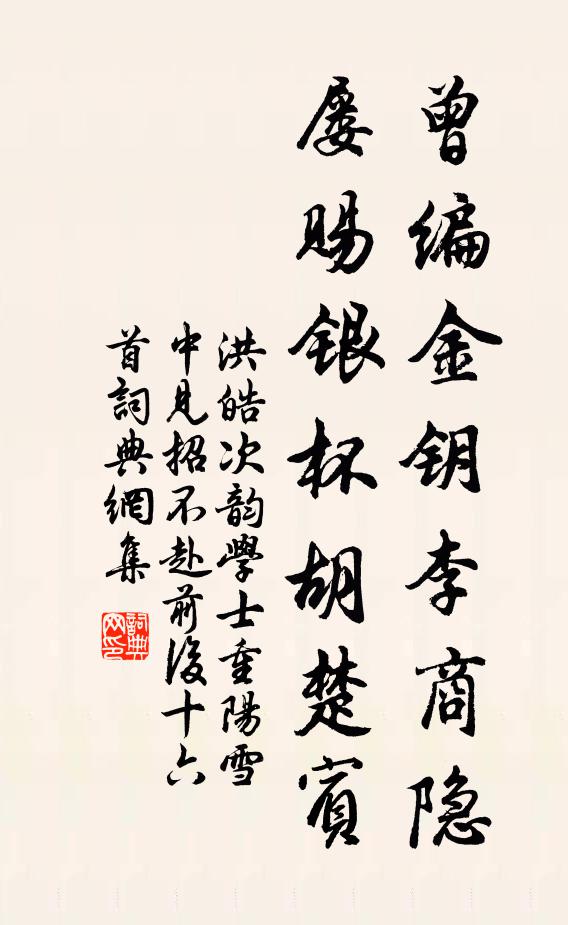 曾编金钥李商隐
屡赐银杯胡楚賓
洪皓次韵學士重陽雪
中見招不赴前後十六
首詞典網集
詞典
网印